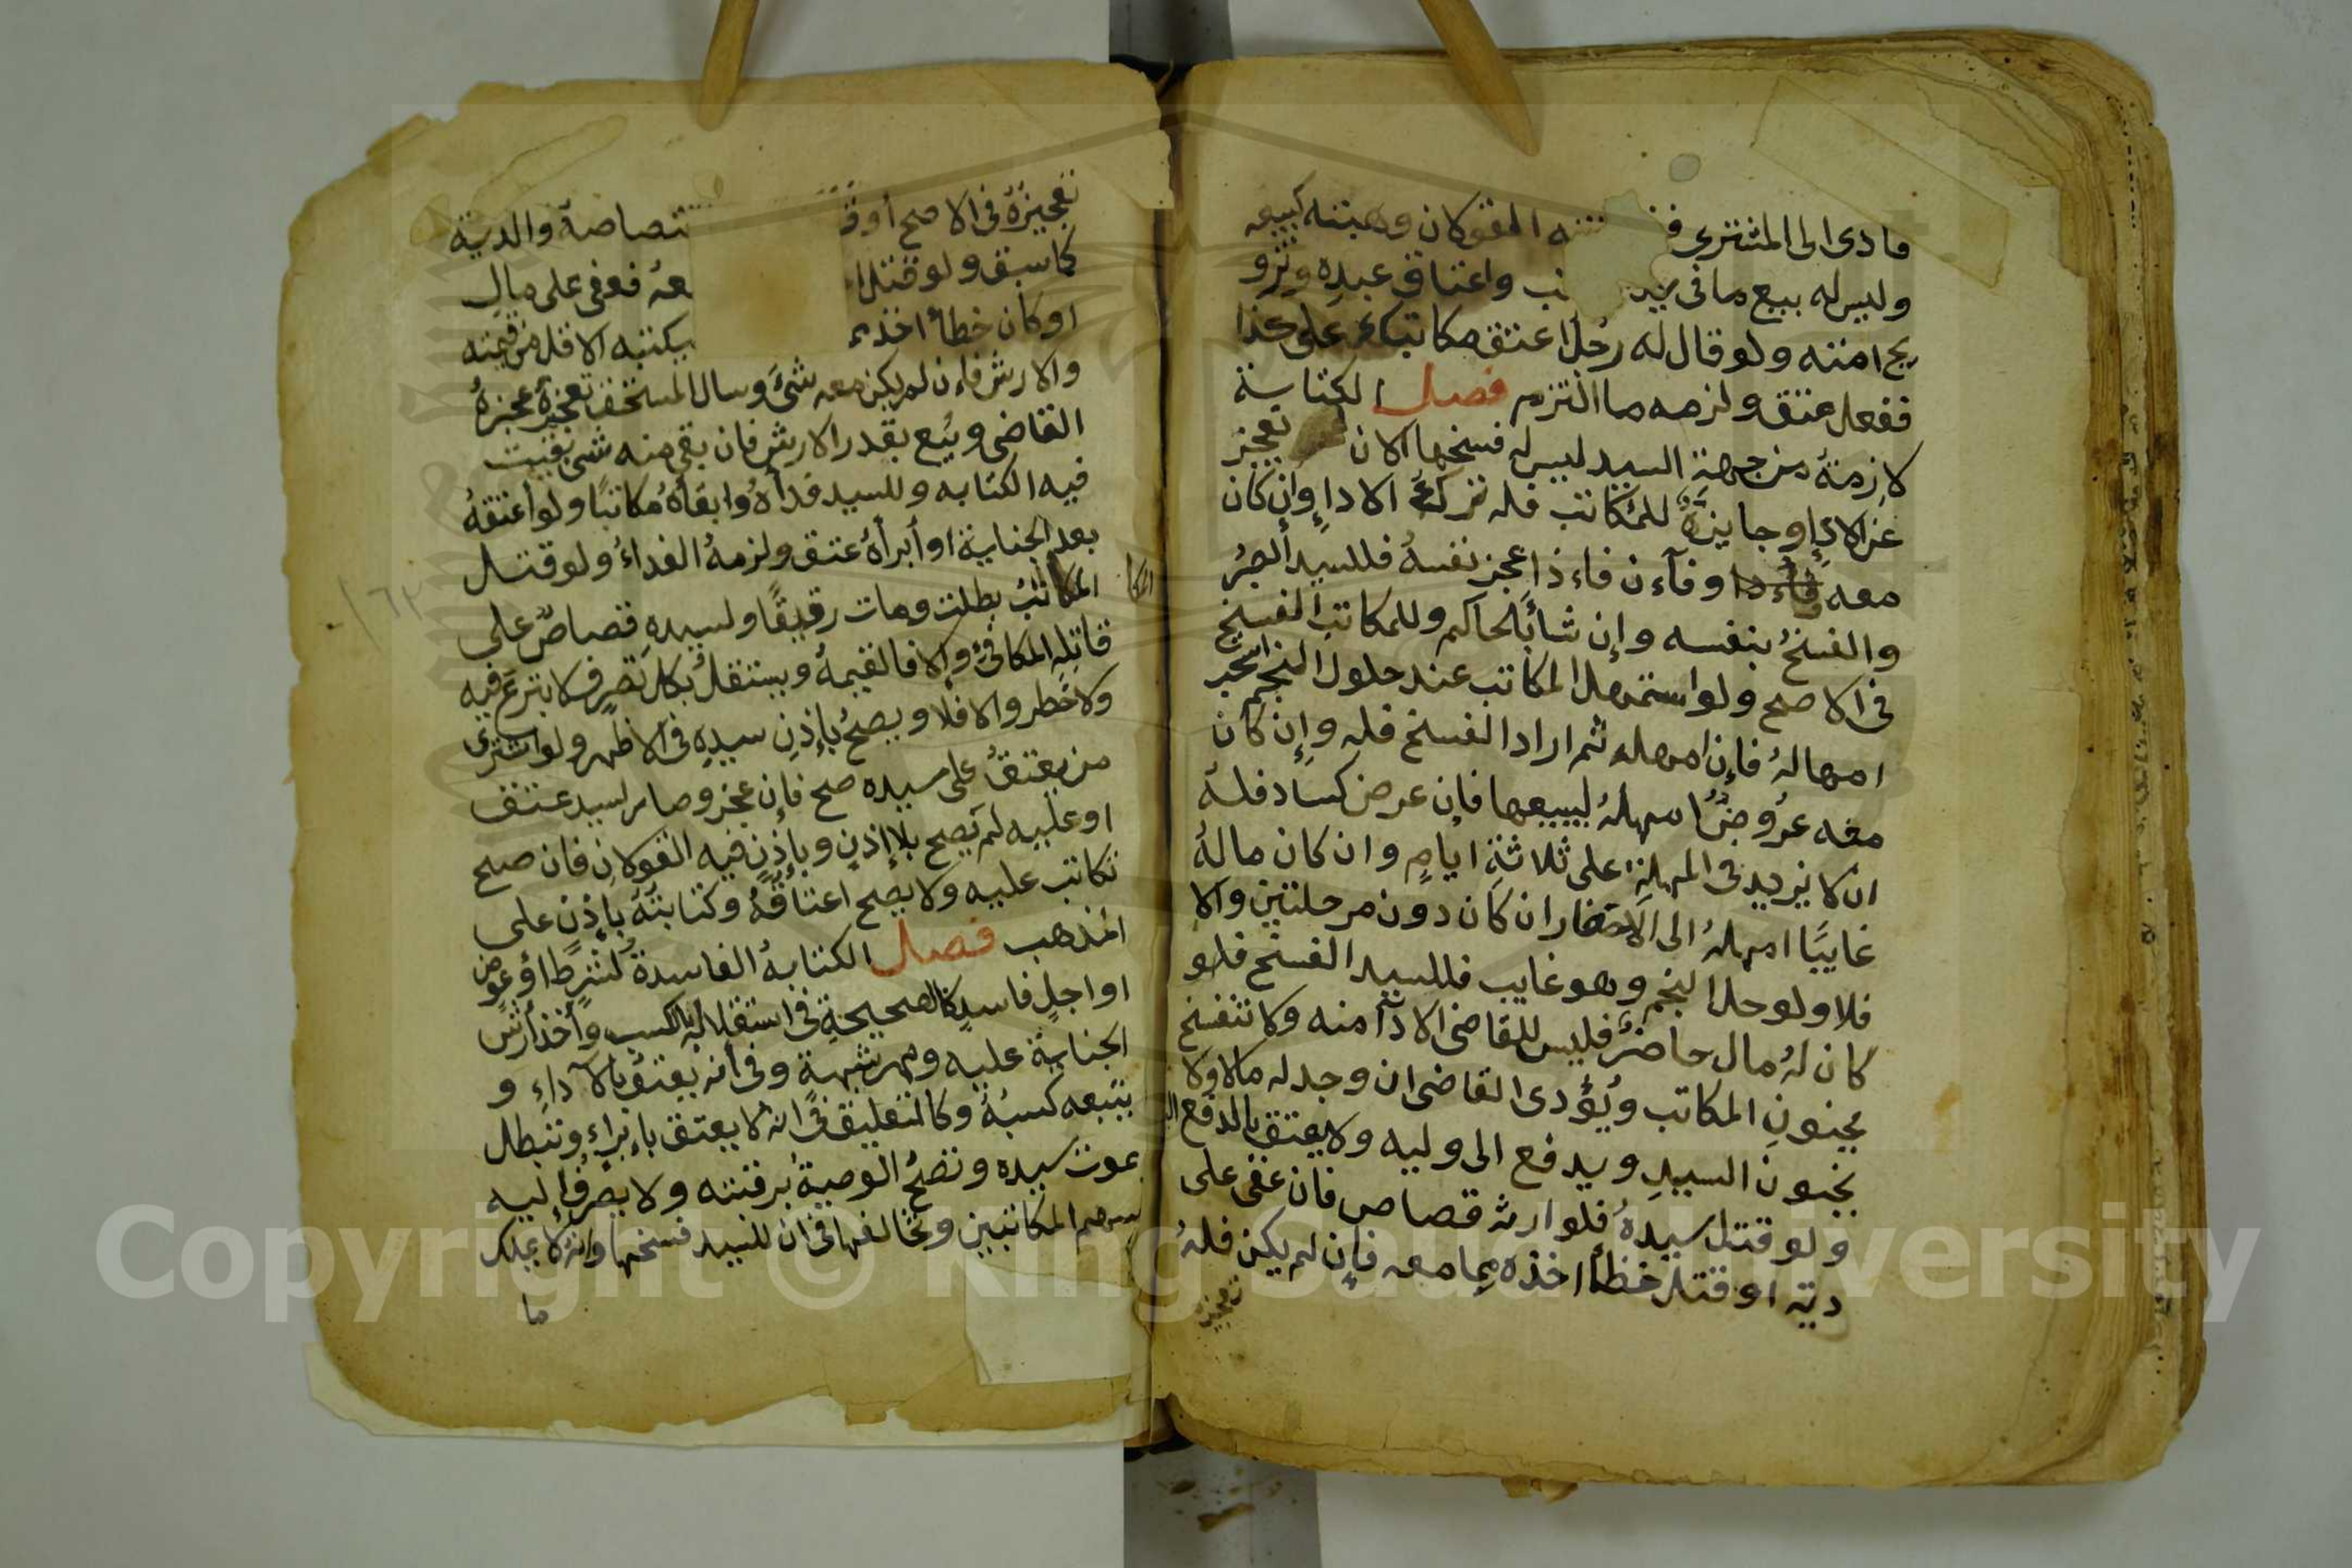 فادى الى المشترى ففـ ـتته القولان وهبته كبيعه
وليس له بيع ما فى يد ـب واعتاق عبدِه وتزو
يج امته ولو قال له رجل اعتق مكاتبك على كذا
ففعل عتق ولزمه ما التزم فصل الكتابة
لازمةٌ من جهة السيد ليس له فسخها الا ان تعجز
عن الادإ وجايزةٌ للمكاتب فله ترك الاداءِ وإن كان
معه وفآء ن فاءذا عجز نفسهُ فللسيد الصبرُ
والفسخُ بنفسه وإن شا بالحاكم وللمكاتب الفسخ
فى الاصح ولو استمهل المكاتب عند حلول النجم استحب
امهالهُ فإن امهل ثم اراد الفسخ فله وإن كان
معه عرُوضٌ امهلهُ ليبيعها فإن عرض كساد فله
ان لا يزيد فى المهلة على ثلاثة ايامٍ وان كان مالهُ
غايبًا امهلهُ الى الاحضار ان كان دون مرحلتين والا
فلا ولو حل النجم وهو غايب فللسيد الفسخ فلو
كان لهُ مال حاضرٌ فليس للقاضى الادآ منه ولا تنفسخ
بجنونِ المكاتب ويُؤدى القاضى ان وجد له مالا ولا
بجنون السيدِ ويدفع الى وليه ولا يعتق بالدفع اليه
ولو قتل سيدهُ فلوارثه قصاص فان عفى على
ديته او قتل خطأ اخذه مما معه فإن لم يكن فلهُ
تعجيزه
تعجيزهُ فى الاصح أو قـ ـتصاصه والدية
كما سبق ولو قتل ا ـعهُ فعفى على مالٍ
او كان خطأ اخذ مـ ـكسبه الاقل من قيمته
والارش فاءن لم يكن معه شئ وسال المستحق تعجيزهُ عجزهُ
القاضى وبيع بقدر الارش فان بقى منه شئ بقيت
فيه الكتابه وللسيد فدآهُ وابقآهُ مكاتبًا ولو أعتقهُ
بعد الجناية او أبرأهُ عتق ولزمهُ الفداءُ ولو قتل
المكاتبُ بطلت ومات رقيقًا ولسيدهِ قصاصٌ على
قاتلِه المكافئِ وإلا فالقيمةُ ويستقلُ بكل تصرفٍ لا تبرعَ فيه
ولا خطر والا فلا ويصحُ بإذنِ سيدهِ فى الاظهر ولو اشترى
من يعتقُ على سيده صح فإن عجز وصار لسيد عتق
او عليه لم يصح بلا إذنٍ وبإذنٍ فيه القولان فان صح
تكاتب عليه ولا يصح اعتاقُهُ وكتابتُهُ بإذن على
المذهب فصل الكتابةُ الفاسدةُ لشرطٍ اوْ عوض
او اجلٍ فاسدٍ كالصحيحةِ فى استقلاله بالكسب وأخذ أرش
الجناية عليه ومهر شبهةٍ وفى أنه يعتق بالأداءِ و
يتبعه كسبُهُ وكالتعليق فى انهُ لا يعتق بإبراءٍ وتبطل
بموت سيده وتصحُ الوصيةُ برقبته ولا يصرفُ إليه
سهم المكاتبين وتخالفها فى ان للسيد فسخها وانه لا يملك
ما